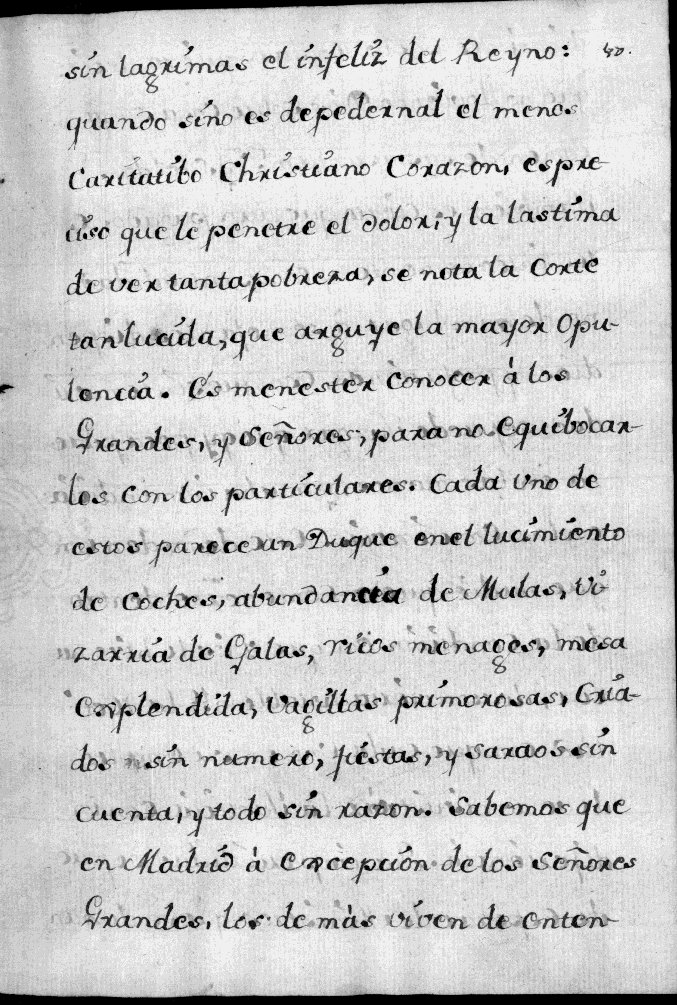 sin lagrimas el infeliz del Reyno: 40.
quando sino es depedernal el menos
Caritatibo Christiano Corazon, espre-
ciso que le penetre el dolor; y la lastima
de ver tantapobreza, se nota la Corte
tanlucida, que arguye la mayor Opu-
lencia. Es menester conocer à los
Grandes, y Señores, para no Equibocar-
los con los particulares. Cada uno de
estos parece un Duque enel lucimiento
de Coches, abundancia de Mulas, Vi
zarria de Galas, ricos menages, mesa
Explendida, Vagillas primorosas, Cria-
dos sin numero, fiestas, y saraos sin
cuenta, y todo sin razon. Sabemos que
en Madrid à Excepcion de los Señores
Grandes, los de màs viven de enten-